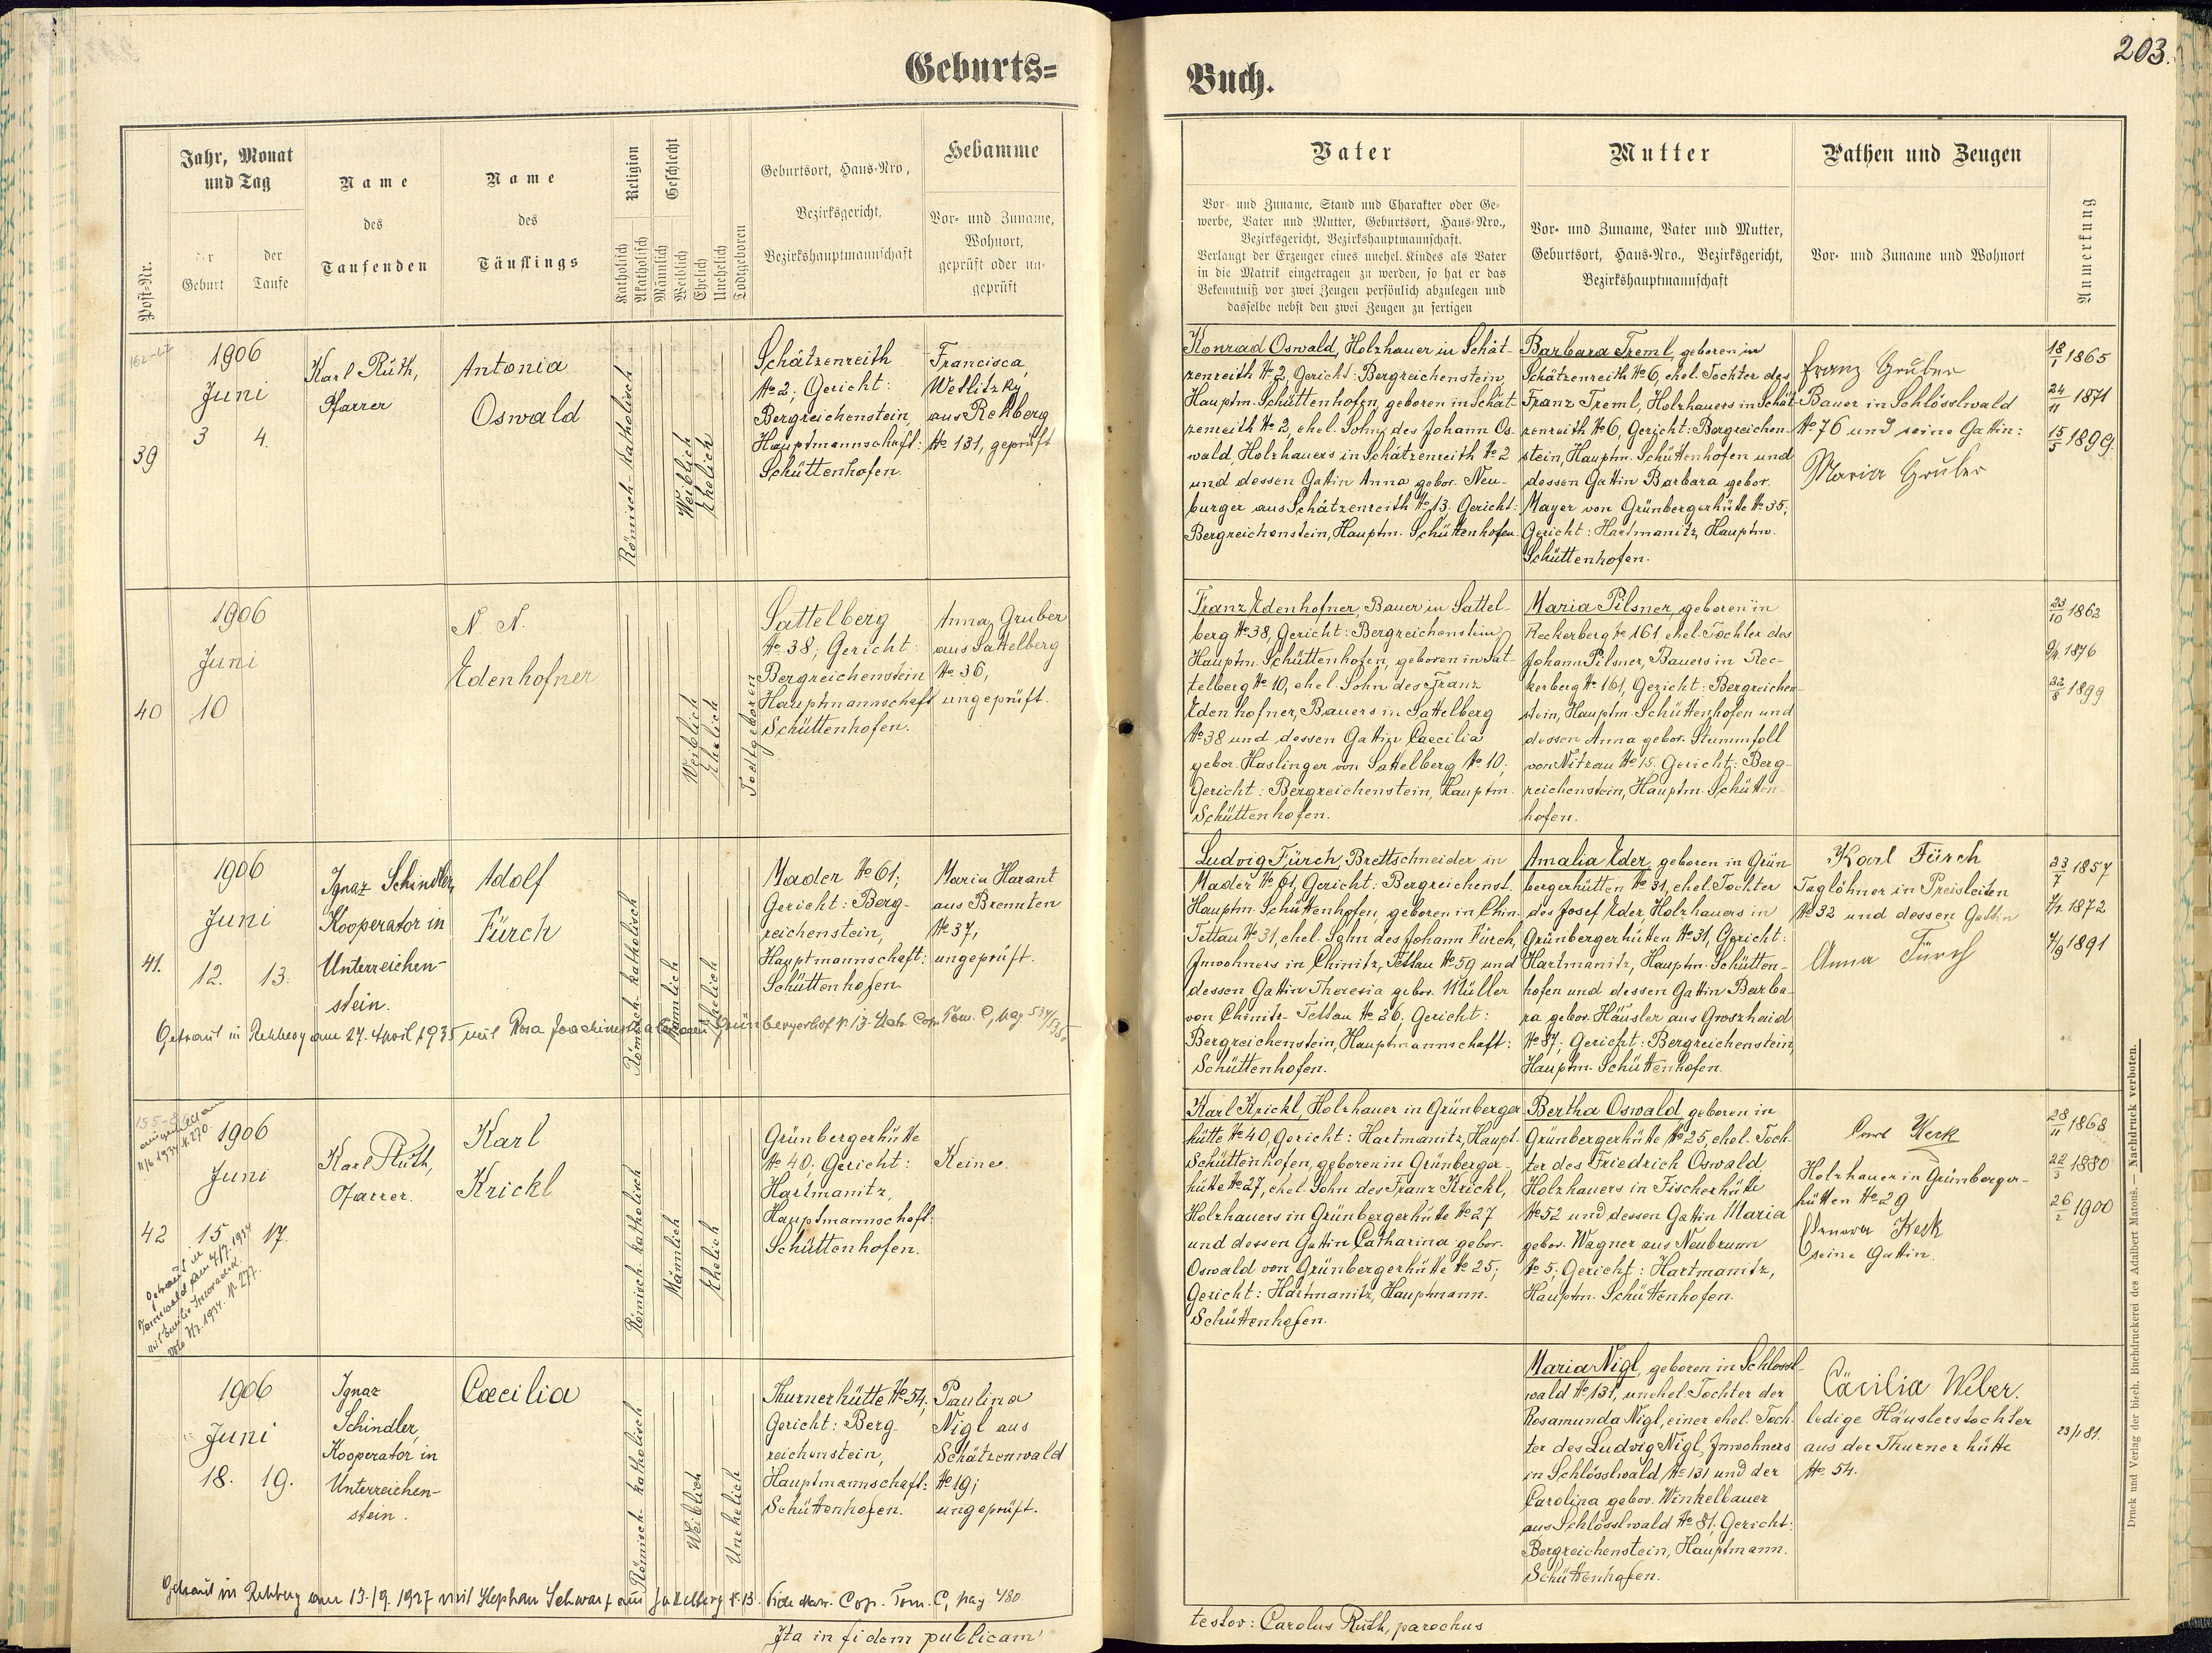 203.
Geburts=
Buch.
Post-Nr.
Jahr, Monat
und Tag
der
Geburt
der
Taufe
Name
des
Taufenden
Name
des
Täuflings
Religion
Katholisch
Akatholisch
Geschlecht
Männlich
Weiblich
Ehelich
Unehelich
Todtgeboren
Geburtsort, Haus-Nro,
Bezirksgericht,
Bezirkshauptmannschaft
Hebamme
Vor- und Zuname,
Wohnort,
geprüft oder un-
geprüft
Vater
Vor- und Zuname, Stand und Charakter oder Ge-
werbe, Vater und Mutter, Geburtsort, Haus-Nro.,
Bezirksgericht, Bezirkshauptmannschaft.
Verlangt der Erzeuger eines unehel. Kindes als Vater
in die Matrik eingetragen zu werden, so hat er das
Bekenntniß vor zwei Zeugen persönlich abzulegen und
dasselbe nebst den zwei Zeugen zu fertigen
Mutter
Vor- und Zuname, Vater und Mutter,
Geburtsort, Haus-Nro., Bezirksgericht,
Bezirkshauptmannschaft
Pathen und Zeugen
Vor- und Zuname und Wohnort
Anmerkung
39
1906
Juni
3 4.
Karl Ruth,
Pfarrer
Antonia
Oswald
Römisch-katholisch
Weiblich
Ehelich
Schätzenreith
№ 2; Gericht:
Bergreichenstein,
Hauptmannschaft:
Schüttenhofen.
Francisca
Wetlitzky
aus Rehberg
№ 131, geprüft
Konrad Oswald, Holzhauer in Schät-
zenreith № 2, Gericht: Bergreichenstein,
Hauptm. Schüttenhofen, geboren in Schät-
zenreith № 2, ehel. Sohn des Johann Os-
wald, Holzhauers in Schätzenreith № 2
und dessen Gattin Anna gebor. Neu-
burger aus Schätzenreith № 13. Gericht:
Bergreichenstein, Hauptm. Schüttenhofen.
Barbara Treml, geboren in
Schätzenreith № 6, ehel. Tochter des
Franz Treml, Holzhauers in Schät-
zenreith № 6, Gericht: Bergreichen-
stein, Hauptm. Schüttenhofen und
dessen Gattin Barbara gebor.
Mayer von Grünbergerhütte № 35;
Gericht: Hartmanitz, Hauptm.
Schüttenhofen.
Franz Gruber
Bauer in Schlösslwald
№ 76 und seine Gattin:
Maria Gruber
18/1 1865
24/11 1871
15/5 1899.
40
1906
Juni
10
N. N.
Edenhofner
Weiblich
Ehelich
Todtgeboren
Sattelberg
№ 38; Gericht:
Bergreichenstein
Hauptmannschaft
Schüttenhofen.
Anna Gruber
aus Sattelberg
№ 36,
ungeprüft.
Franz Edenhofner, Bauer in Sattel-
berg № 38, Gericht: Bergreichenstein,
Hauptm. Schüttenhofen, geboren in Sat-
telberg № 10, ehel. Sohn des Franz
Edenhofner, Bauers in Sattelberg
№ 38 und dessen Gattin Caecilia
gebor. Haslinger von Sattelberg № 10;
Gericht: Bergreichenstein, Hauptm.
Schüttenhofen.
Maria Pilsner, geboren in
Reckerberg № 161, ehel. Tochter des
Johann Pilsner, Bauers in Rec-
kerberg № 161, Gericht: Bergreichen-
stein, Hauptm. Schüttenhofen und
dessen Anna gebor. Stummfoll
von Nitzau № 15. Gericht: Berg-
reichenstein, Hauptm. Schütten-
hofen.
23/10 1862
9/4. 1876
22/8 1899
41.
1906
Juni
12. 13.
Ignaz Schindler,
Kooperator in
Unterreichen-
stein.
Adolf
Fürch
Römisch-katholisch
Männlich
Ehelich
Mader № 61;
Gericht: Berg-
reichenstein,
Hauptmannschaft:
Schüttenhofen
Maria Harant
aus Brennten
№ 37,
ungeprüft.
Getraut in Rehberg am 27. April 1935 mit Rosa Joachimsthaler aus Grünbergerhof № 13. Matr. Cop. Tom. C, pag 534/535.
Ludvig Fürch, Brettschneider in
Mader № 61, Gericht: Bergreichenst.
Hauptm. Schüttenhofen, geboren in Chin.
Tettau № 31, ehel. Sohn des Johann Fürch,
Inwohners in Chinitz, Tettau № 59 und
dessen Gattin Theresia gebor. Müller
von Chinitz-Tettau № 26. Gericht:
Bergreichenstein, Hauptmannschaft:
Schüttenhofen.
Amalia Eder, geboren in Grün-
bergerhütten № 31, ehel. Tochter
des Josef Eder, Holzhauers in
Grünbergerhütten № 31, Gericht:
Hartmanitz, Hauptm. Schütten-
hofen und dessen Gattin Barba-
ra gebor. Häusler aus Groszhaid
№ 87; Gericht: Bergreichenstein,
Hauptm. Schüttenhofen.
Karl Fürch
Taglöhner in Preisleiten
№ 32 und dessen Gattin
Anna Fürch
23/7 1857
1872
7/9 1891
42
1906
Juni
15 17.
Karl Ruth,
Pfarrer.
Karl
Krickl
Römisch-katholisch
Männlich
Ehelich
Grünbergerhütte
№ 40. Gericht:
Hartmanitz,
Hauptmannschaft:
Schüttenhofen.
Keine.
Getraut in
am 4/7. 1934
mit
1934. № 277.
Karl Krickl, Holzhauer in Grünberger-
hütte № 40, Gericht: Hartmanitz, Haupt-
Schüttenhofen, geboren in Grünberger-
hütte № 27, ehel. Sohn des Franz Krickl,
Holzhauers in Grünbergerhütte № 27
und dessen Gattin Catharina gebor.
Oswald von Grünbergerhütte № 25;
Gericht: Hartmanitz, Hauptmann.
Schüttenhofen.
Bertha Oswald, geboren in
Grünbergerhütte № 25, ehel. Toch-
ter des Friedrich Oswald,
Holzhauers in Fischerhütte
№ 52 und dessen Gattin Maria
gebor. Wagner aus Neubrunn
№ 5; Gericht: Hartmanitz,
Hauptm. Schüttenhofen.
Keck
Holzhauer in Grünberger-
hütten № 29
Keck
seine Gattin.
28/11 1868
22/3 1880
26/2 1900
1906
Juni
18. 19.
Ignaz
Schindler,
Kooperator in
Unterreichen-
stein.
Cæcilia
Römisch-katholisch
Weiblich
Unehelich
Thurnerhütte № 54;
Gericht: Berg-
reichenstein,
Hauptmannschaft:
Schüttenhofen.
Paulina
Nigl aus
Schätzenwald
№ 19;
ungeprüft.
Getraut in Rehberg am 13./9. 1927 mit Stephan Schwarz aus Sattelberg № 13. Vide Matr. Cop. Tom. C, pag 480
Maria Nigl, geboren in Schlössl-
wald № 131, unehel. Tochter der
Rosamunda Nigl, einer ehel. Toch-
ter des Ludvig Nigl, Inwohners
in Schlösslwald № 131 und der
Carolina gebor. Winkelbauer
aus Schlösslwald № 81. Gericht:
Bergreichenstein, Hauptmann.
Schüttenhofen.
Cäcilia Weber.
ledige Häuslerstochter
aus der Thurnerhütte
№ 54.
23/1 81.
Ita in fidem publicam
testor: Carolus Ruth, parochus
Druck und Verlag der bisch. Buchdruckerei des Adalbert Matouš. — Nachdruck verboten.